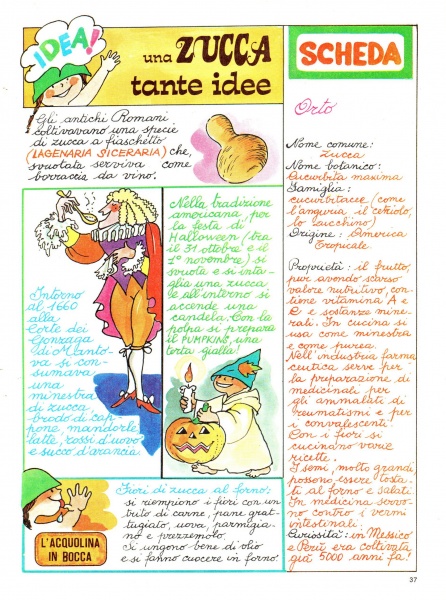 IDEA!
una ZUCCA
tante idee
Gli antichi Romani
coltivavano una specie
di zucca a fiaschetto
(LAGENARIA SICERARIA) che,
svuotata serviva come
borraccia da vino.
Intorno
al 1660
alla
corte dei
Gonzaga
di Manto
va si con
sumava
una
minestra
di zucca
brodo di cap
pone, mandorle,
latte, rossi d'uovo
e succo d'arancia
Nella tradizione
americana, per
la festa di
Halloween (tra
il 31 ottobre e il
1° novembre) si
svuota e si inta
glia una zucca
e all'interno si
accende una
candela. Con la
polpa si prepara
il PUMPKING, una
torta gialla!
Fiori di zucca al forno:
si riempiono i fiori con un
trito di carne, pane grat
tugiato, uova, parmigia
no e prezzemolo.
Si ungono bene di olio
e si fanno cuocere in forno.
L'ACQUOLINA
IN BOCCA
SCHEDA
Orto
Nome comune:
Zucca
Nome botanico:
Cucurbita maxima
Famiglia:
cucurbitacee (come
l'anguria il cetriolo,
lo zucchino)
Origine: America
Tropicale
Proprietà: il frutto,
pur avendo scarso
valore nutritivo, con
tiene vitamina A e
C e sostanze mine
rali. In cucina si
usa come minestra
e come purea.
Nell'industria farma
ceutica serve per
la preparazione di
medicinali per
gli ammalati di
reumatismi e per
i convalescenti.
Con i fiori si
cucinano varie
ricette.
I semi, molto grandi,
possono essere tosta
ti al forno e salati
In medicina servo
no contro i vermi
intestinali.
Curiosità: in Messico
e Perù era coltivata
già 5000 anni fa!
37